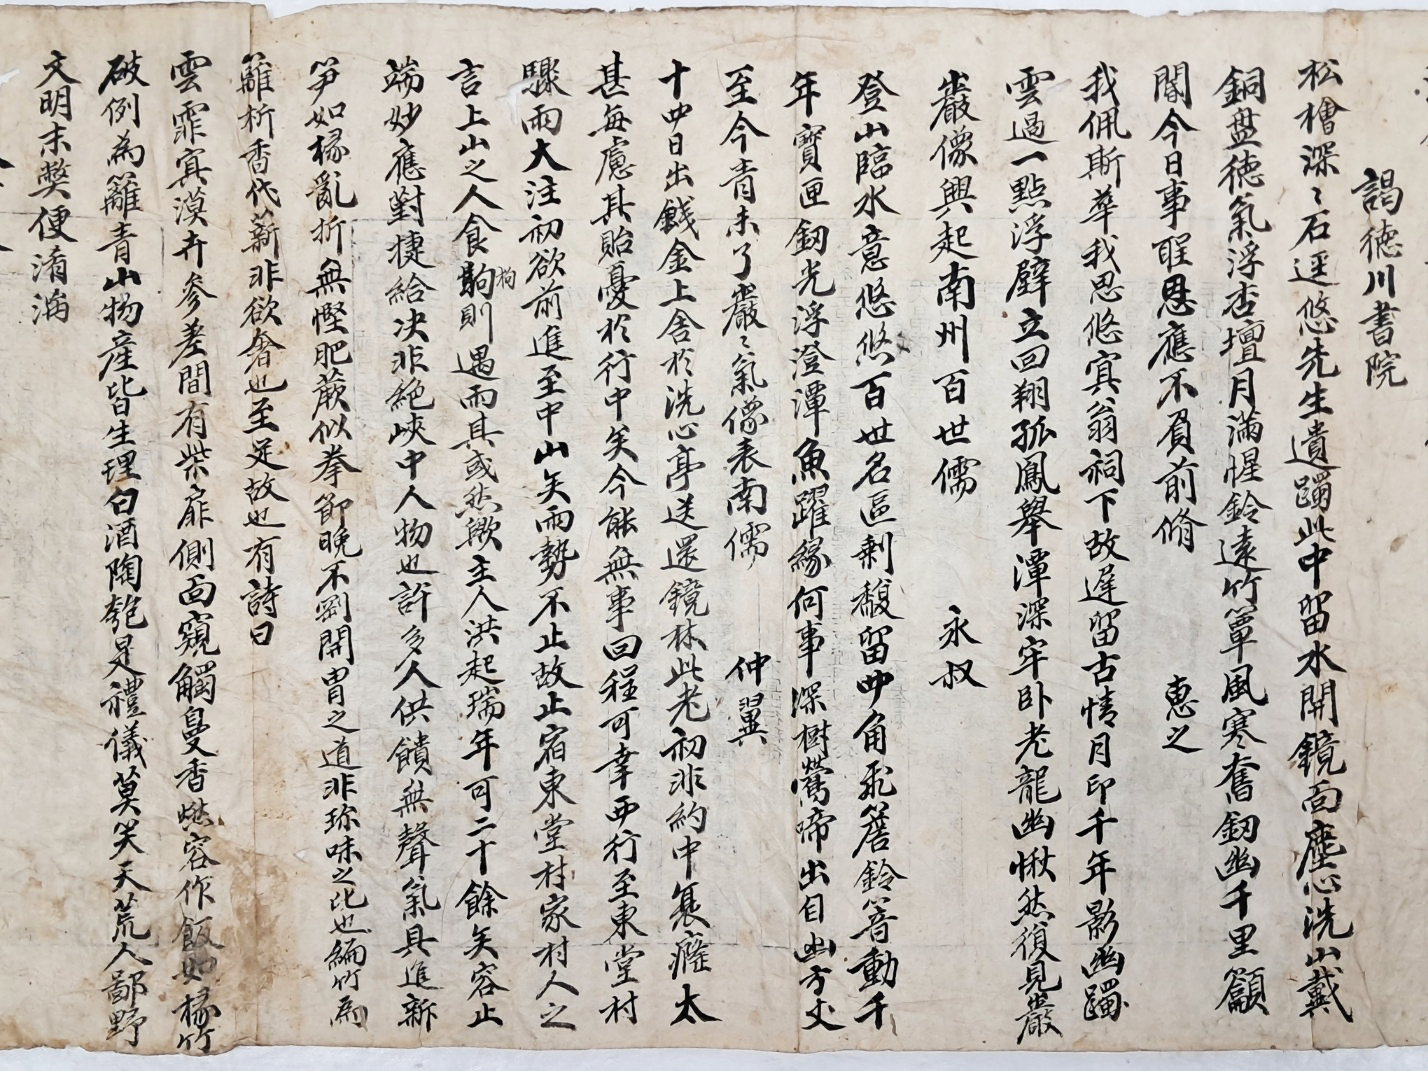 謁德川書院
松檜深〻石逕悠先生遺躅此中留水開鏡面塵心洗山戴
銅盤德氣浮杏壇月滿惺鈴遠竹簟風寒奮釼幽千里籲
閽今日事聖恩應不負前脩 惠之
我佩斯華我思悠寘翁祠下故遲留古情月印千年影幽躅
雲過一點浮壁立回翔孤鳳擧潭深牢卧老龍幽愀然復見巖
巖像興起南州百世儒 永叔
登山臨水意悠悠百世名區剩馥留丱角飛簷鈴簹動千
年寶匣釼光浮澄潭魚躍緣何事深樹鶯啼出自幽方丈
至今靑未了巖〻氣像表南儒 仲翼
十四日出餞金上舍於洗心亭送還鏡林此老初非約中衰癃太
甚每慮其貽憂於行中矣今能無事回程可幸西行至東堂村
驟雨大注初欲前進至中山矣雨勢不止故止宿東堂村家村人之
言上山之人食駒狗則遇雨其或然歟主人洪起瑞年可二十餘矣容止
端妙應對捷給决非絕峽中人物也許多人供饋無聲氣具進新
笋如椽亂折無慳肥蕨似拳節晚不劉開胃之道非珎味之比也編竹爲
籬析香代薪非欲奢也至足故也有詩曰
雲霏寘漠卉參差間有柴扉側面窺觸臭香㷡容作飯如椽竹
破例爲籬靑山物産皆生理白酒陶匏是禮儀莫笑天荒人鄙野
文明末獘便淆漓